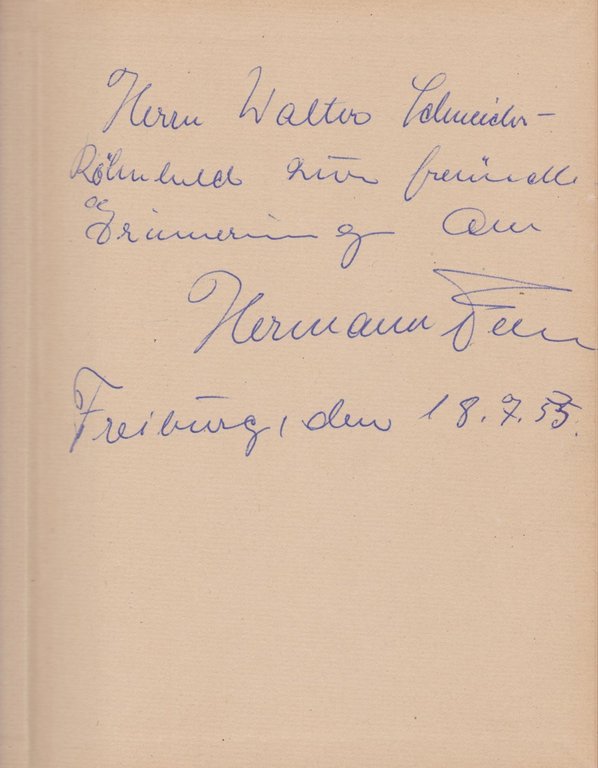 Herrn Walter Schneider-
Römhild zur freundl.
Erinnerung an
Hermann
Freiburg, den 18.7.55.